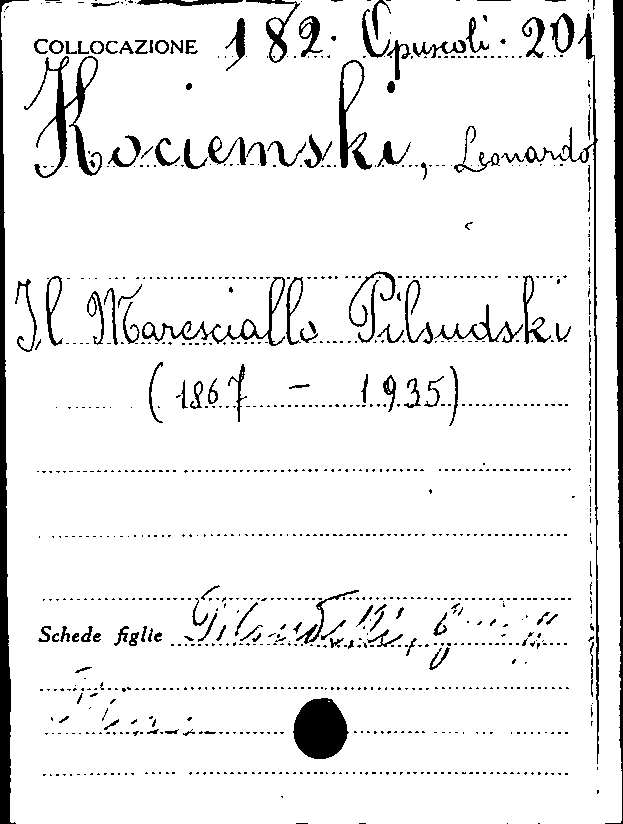 COLLOCAZIONE 182. Opuscoli. 201
Kociemski, Leonardo
Il Maresciallo Pilsudski
(1867 - 1935)
Schede figlie Pilsudski,